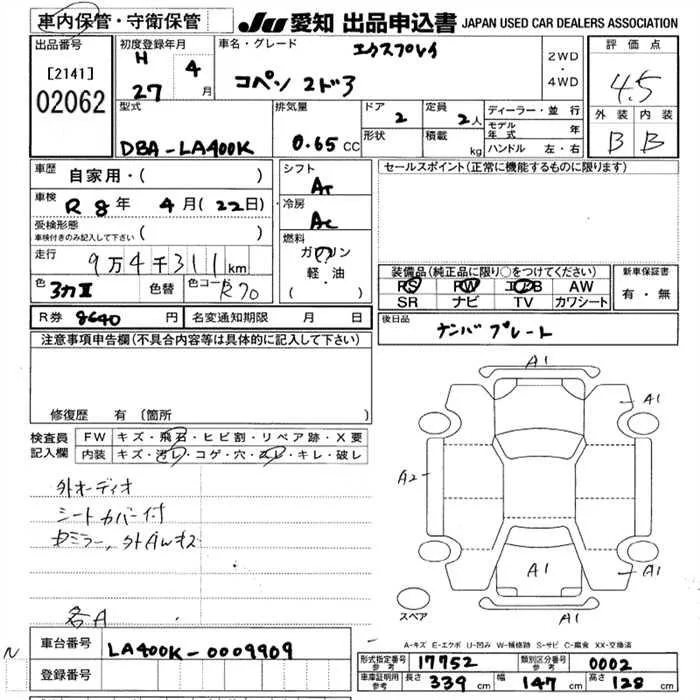 車内保管・守衛保管 JU 愛知 出品申込書 JAPAN USED CAR DEALERS ASSOCIATION
出品番号 [2141] 02062
初度登録年月 H 27 4月
車名・グレード エクスプレイ
コペン 2ドア
2WD・4WD
評価点 4.5
外装 内装
B B
型式 DBA-LA400K
排気量 0.65 CC
ドア 2
定員 2人
形状
積載 kg
ディーラー・並行
モデル年式 年
ハンドル 左・右
車歴 自家用・( )
車検 R 8年 4月(22日)
受検形態 車検付きのみ記入して下さい ( )
走行 9万4千311km
色 色替 色コード R70
シフト AT
冷房 AC
燃料 ガソリン 軽油 ( )
セールスポイント(正常に機能するものに限ります)
装備品(純正品に限り○をつけてください)
RS PW エアB AW
SR ナビ TV カワシート
新車保証書 有・無
R券 8640円 名変通知期限 月 日
後日品 ナンバープレート
注意事項申告欄(不具合内容等は具体的に記入して下さい)
修復歴 有(箇所
検査員記入欄
FW キズ・飛石・ヒビ割・リペア跡・X要
内装 キズ・汚レ・コゲ・穴・スレ・キレ・破レ
外オーディオ
シートカバー付
各A
A1
A1
A2
A1
A1
A1
スペア
A-キズ E-エクボ U-凹み W-補修跡 S-サビ C-腐食 XX-交換済
N
車台番号 LA400K-0009909
登録番号
形式指定番号 参考 17752
類別区分番号 参考 0002
車庫証明用 参考 長さ 339cm 幅 147cm 高さ 128cm